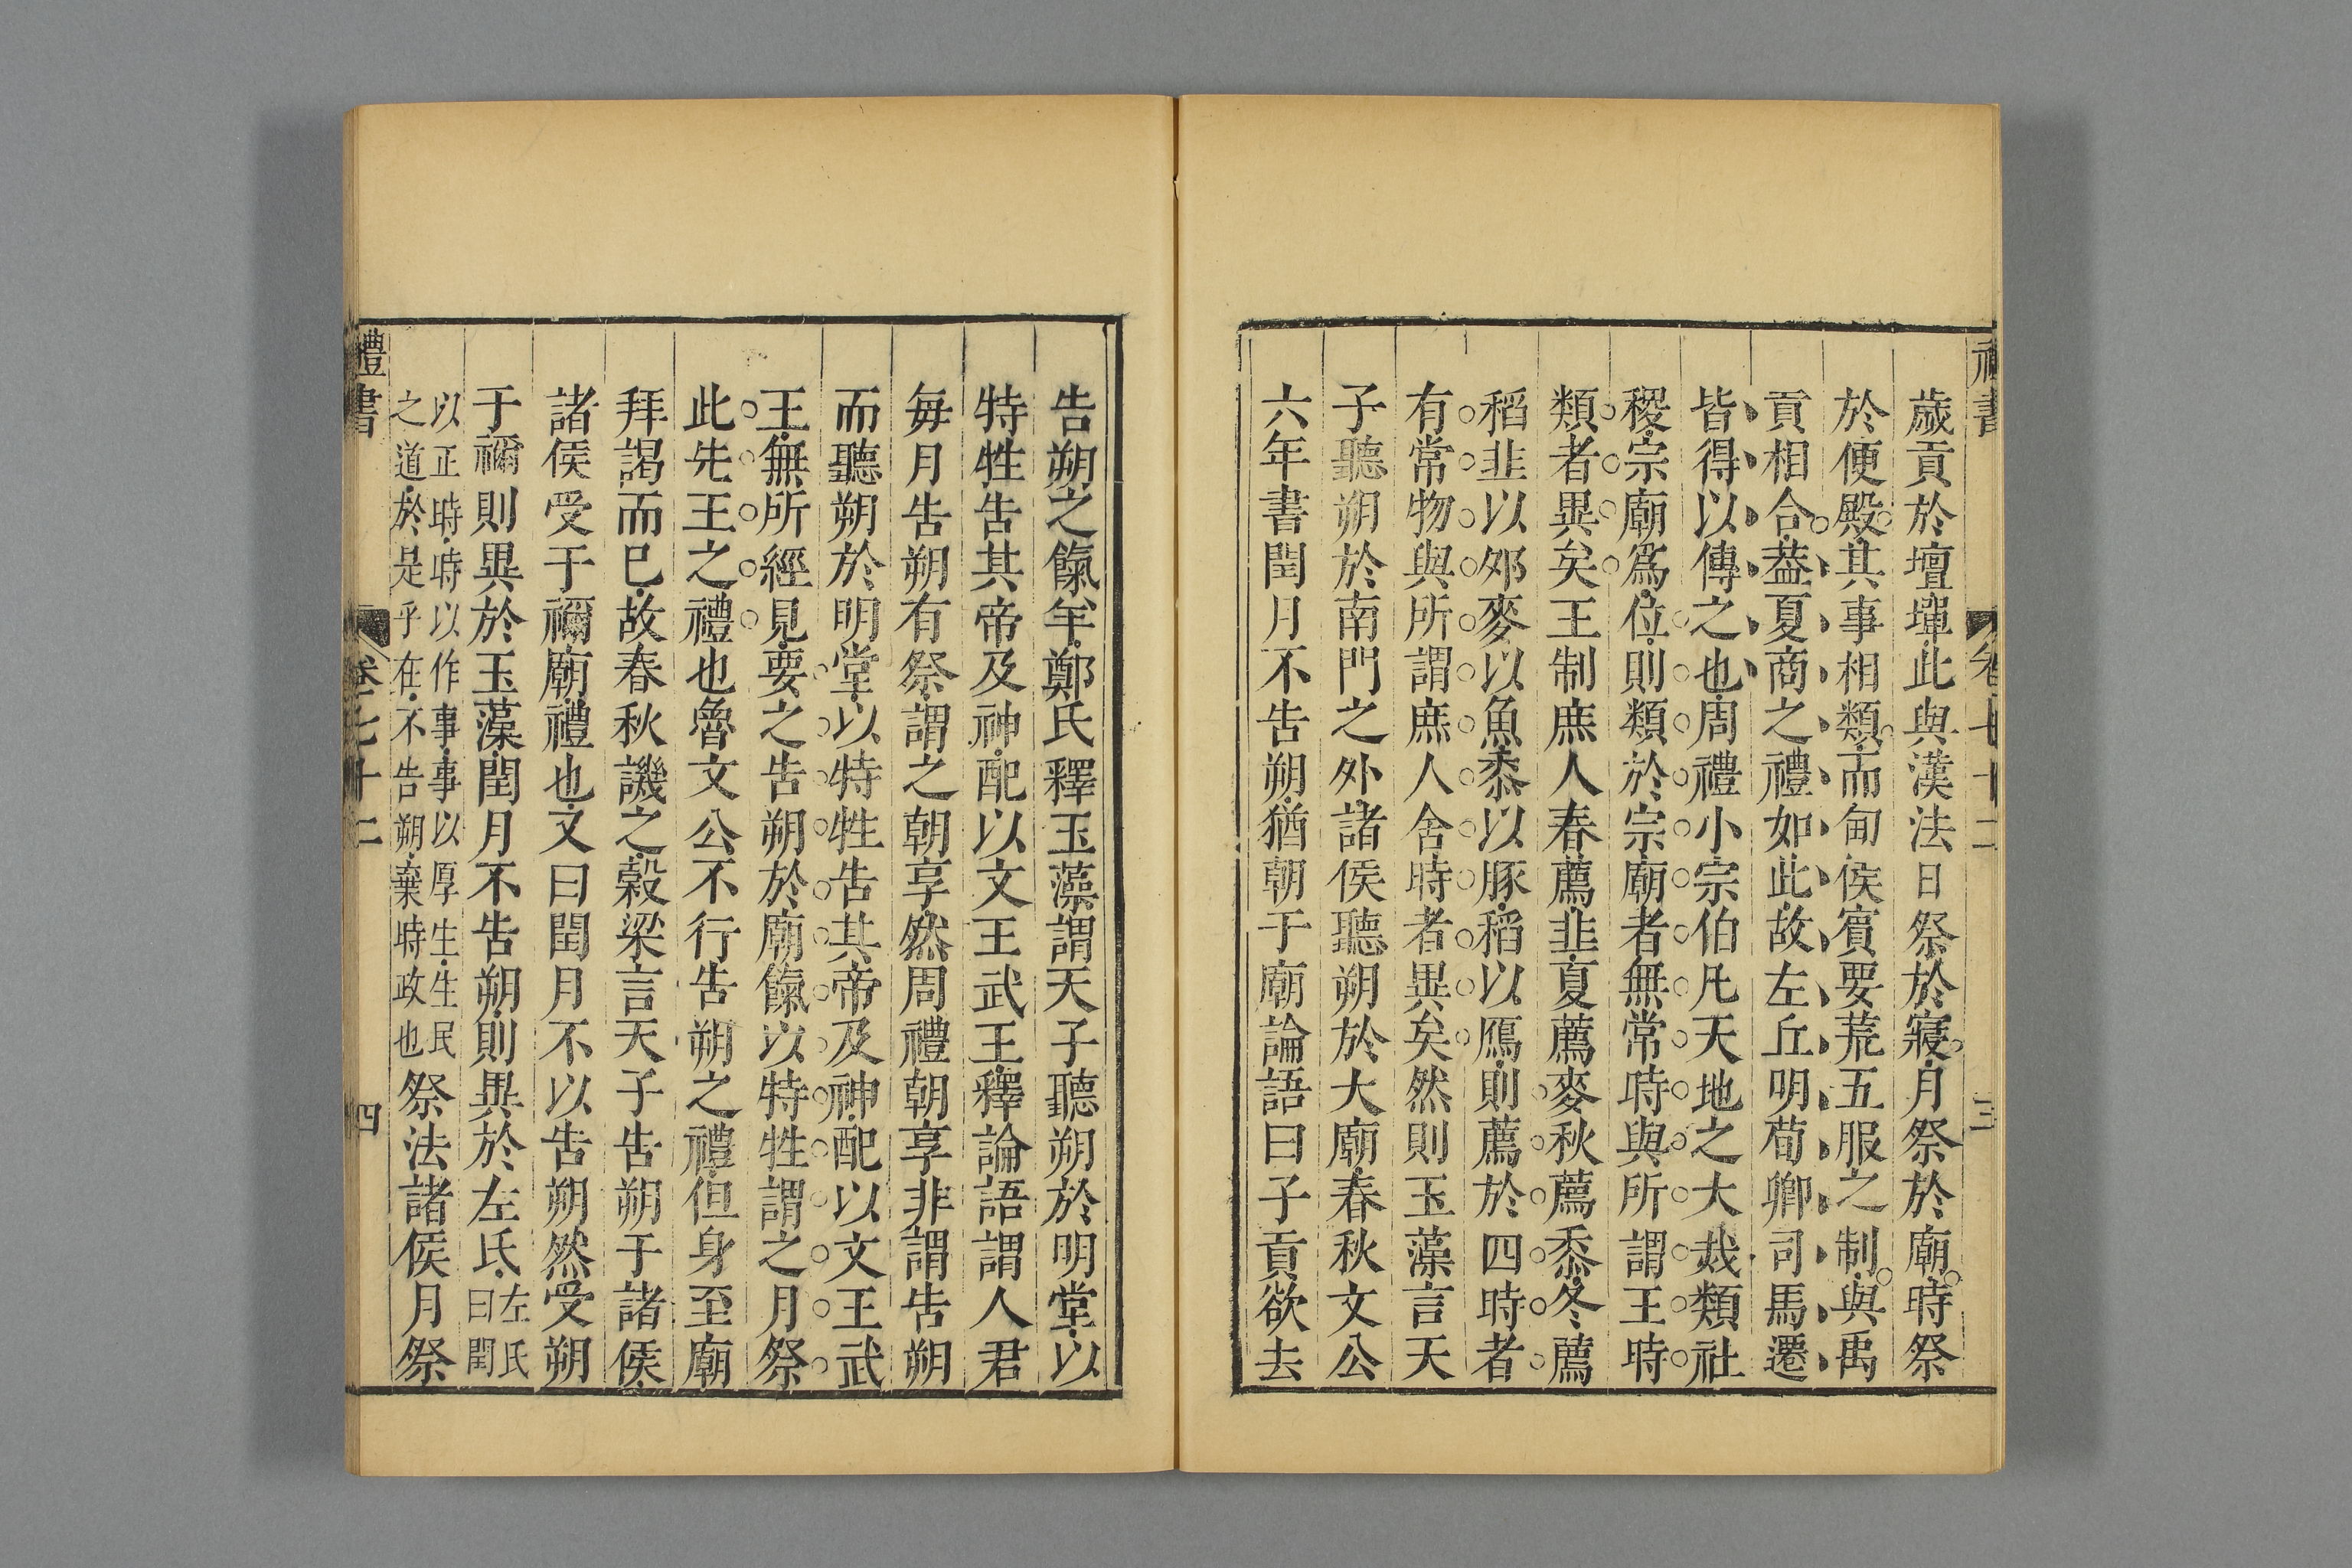 禮書 卷七十二 三
歲貢於壇墠此與漢法日祭於寢月祭於廟時祭
於便殿其事相類而甸侯賓要荒五服之制與禹
貢相合葢夏商之禮如此故左丘明荀卿司馬遷
皆得以傳之也周禮小宗伯凡天地之大烖類社
稷宗廟爲位則類於宗廟者無常時與所謂王時
類者異矣王制庶人春薦韭夏薦麥秋薦黍冬薦
稻韭以卵麥以魚黍以豚稻以鴈則薦於四時者
有常物與所謂庶人舍時者異矣然則玉藻言天
子聽朔於南門之外諸侯聽朔於大廟春秋文公
六年書閏月不告朔猶朝于廟論語曰子貢欲去
告朔之餼羊鄭氏釋玉藻謂天子聽朔於明堂以
特牲告其帝及神配以文王武王釋論語謂人君
每月告朔有祭謂之朝享然周禮朝享非謂告朔
而聽朔於明堂以特牲告其帝及神配以文王武
王無所經見要之告朔於廟餼以特牲謂之月祭
此先王之禮也魯文公不行告朔之禮但身至廟
拜謁而已故春秋譏之穀梁言天子告朔于諸侯
諸侯受于禰廟禮也又曰閏月不以告朔然受朔
于禰則異於玉藻閏月不告朔則異於左氏左氏曰閏
以正時時以作事事以厚生生民之道於是乎在不告朔棄時政也祭法諸侯月祭
禮書 卷七十二 四